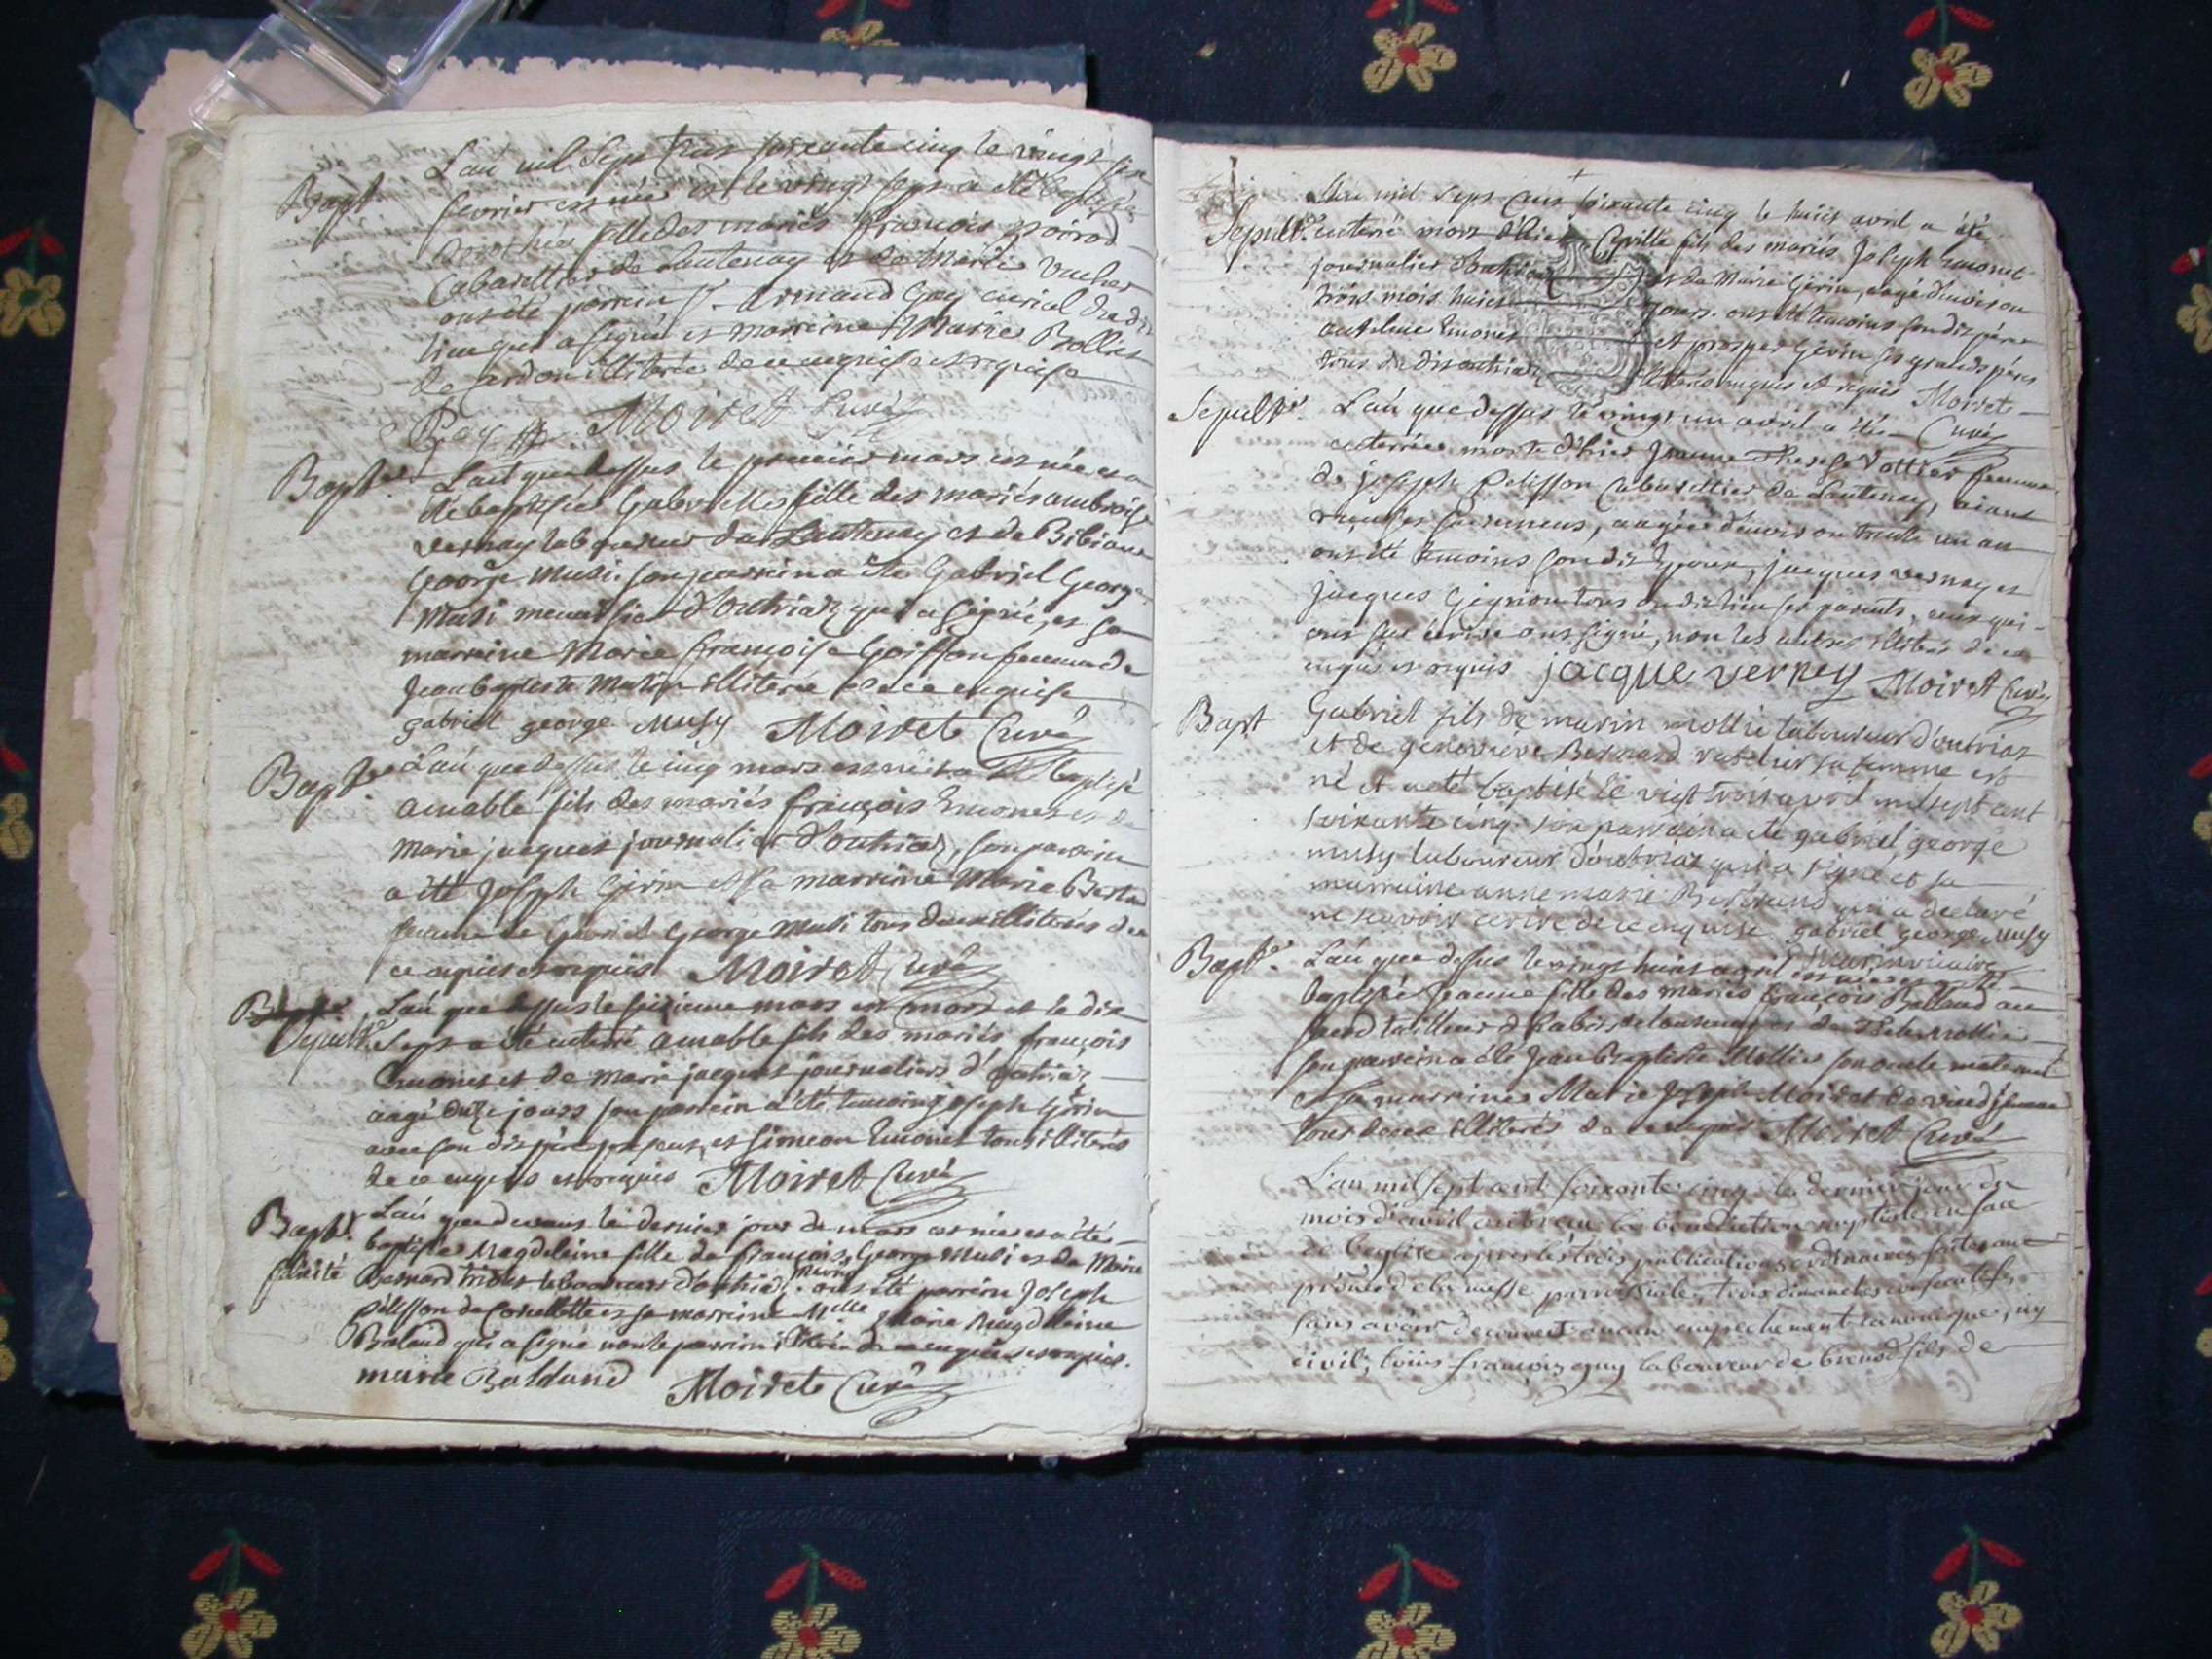 L'an mil sept cens soixante cinq le vingt six
Bapt. fevrier est née et le vingt sept a été baptisée
fille des mariés françois poirod
Cabarettier de Lantenay et de Marie Vucher
ont été parrein Sr. Armand Gay curial du dit
lieu qui a signé et marreine Marie Rollier
de illiterée de ce enquise et requise
Gay Moiret Curé
Bapt.e L'an que dessus le premier mars est née et a
été baptisée Gabrielle fille des mariés ambroise
vernay laboureur de Lantenay et de Bibiane
George Musi. son parrein a été Gabriel George
Musi menuisier d'outriaz qui a signé, et sa
marreine Marie françoise Goiffon femme de
Jean baptiste Musi illiterée de ce enquise
gabriel george Musy Moiret Curé
Bapt.e L'an que dessus le cinq mars est né et a été baptisé
amable fils des mariés françois Emonet et de
marie jacques journalier d'outriaz, son parrein
a été Joseph Girin et sa marreine Marie
femme de Gabriel George Musi tous deux illiterés de
ce enquis et requis Moiret Curé
Sepult.e L'an que dessus le seizieme mars est mort et le dix
sept a été enterré amable fils des mariés françois
Emonet et de marie jacques journaliers d'outriaz
aagé d'onze jours son parrein a été temoins joseph Girin
avec son dit père present, et Simeon Emonet tous illiterés
de ce enquis et requis Moiret Curé
Bapt. L'an que devant le dernier jour de mars est née et a été
baptisée Magdeleine fille de françois George Musi et de Marie
Bernard mariés laboureurs d'outriaz. ont été parrein Joseph
pelisson de Corcellette et sa marreine Melle Marie Magdeleine
Baland qui a signé non le parrein illiteré de ce enquis et requis.
marie Baldand Moiret Curé
L'an mil sept cens soixante cinq le huit avril a été
Sepult.e enterré mort d'hier Cyrille fils des mariés Joseph Emonet
journalier d'outriaz et de Marie Girin, aagé d'environ
trois mois huit jours. ont été temoins son dit père
antelme Emonet et prosper Girin ses grands pères
tous du dit outriaz illiterés enquis et requis Moiret
Curé
Sepult.e L'an que dessus le vingt un avril a été
enterrée morte d'hier Jeanne Therese Vottier femme
de joseph Pelisson Cabarettier de Lantenay, aiant
reçu ses sacremens, aagée d'environ trente un an
ont été temoins son dit Epoux, jacques vernay et
jacques Gignion tous du dit lieu ses parents, ceux qui
ont sçu ecrire ont signé, non les autres illiterés de ce
enquis et requis jacque verney Moiret Curé
Bapt Gabriel fils de marin mollie laboureur d'outriaz
et de genevieve Bernard sa femme est
né et a été baptisé le vingt trois avril mil sept cent
soixante cinq. son parrain a été gabriel george
musy laboureur d'outriaz qui a signé et sa
marraine anne marie Bertrand qui a declaré
ne sçavoir ecrire de ce enquise gabriel george Musy
Bapt.e L'an que dessus le vingt huit avril est née et a été
baptisée Jeanne fille des mariés françois Balland
tailleur d'habits de lantenay et de Mollie
son parrein a été Jean Baptiste Mollie son oncle maternel
et sa marreine Marie Joseph Moiret
tous deux illiterés de ce enquis Moiret Curé
L'an mil sept cent soixante cinq le dernier jour du
mois d'avril ont reçu la benediction nuptiale en face
de l'eglise apres les trois publications ordinaires faites aux
prônes de la messe paroissiale, trois dimanches consecutifs,
sans avoir decouvert aucun empechement canonique, ny
civil, françois guy laboureur de brenod fils de